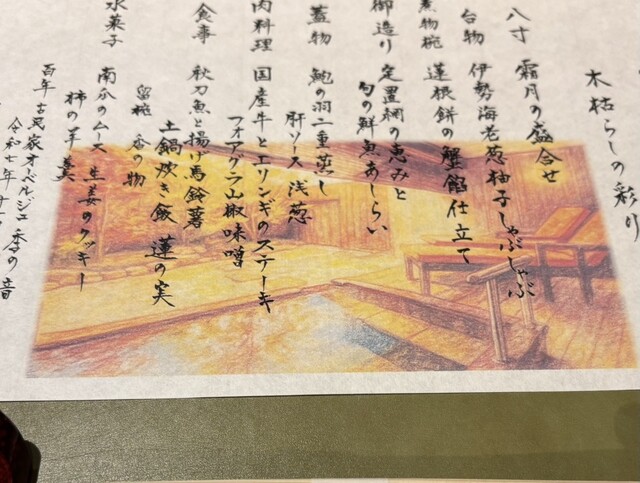 木枯らしの彩り
八寸 霜月の盛合せ
台物 伊勢海老葱柚子しゃぶしゃぶ
煮物椀 蓮根餅の蟹餡仕立て
御造り 定置網の恵みと
旬の鮮魚あしらい
蓋物 鮑の羽二重蒸し
肝ソース 浅葱
肉料理 国産牛とエリンギのステーキ
フォアグラ山椒味噌
食事 秋刀魚と揚げ馬鈴薯
土鍋炊き飯 蓮の実
留椀 香の物
水菓子 南瓜のムース 生姜のクッキー
柿の羊羹
百年古民家オーベルジュ 季の音
令和七年十